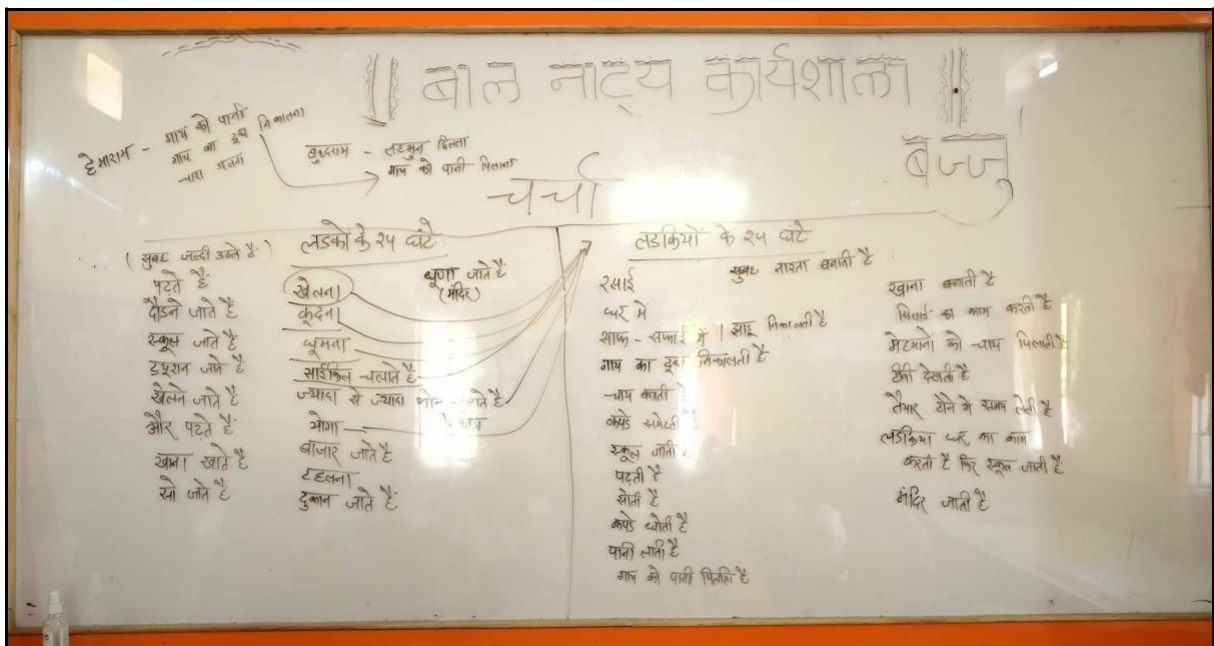 बाल नाट्य कार्यशाला
बज्जु
हेमाराम - गाय को पानी
गाय का दूध निकालना
चारा
बुधराम - लहसुन
गाय को पानी पिलाना
चर्चा
लडकों के २५ घंटे
(सुबह जल्दी उठते है)
पढ़ते है
दौडने जाते है
स्कूल जाते है
ट्यूशन जाते है
खेलने जाते है
और पढ़ते है
खाना खाते है
सो जाते है
खेलना
कूदना
घूमना
साईकिल चलाते है
ज्यादा से ज्यादा
योगा
बाजार जाते है
टहलना
दुकान जाते है
धूणा जाते है
(मंदिर)
लडकियों के २५ घंटे
सुबह नाश्ता बनाती है
रसाई
घर में
साफ - सफाई में | झाडू निकालती है
गाय का दूध निकालती है
चाय बनाती है
कपडे समेटती
स्कूल जाती है
पढ़ती है
सोती है
कपडे धोती है
पानी लाती है
गाय को पानी पिलाती है
खाना बनाती है
सिलाई का काम करती है
मेहमानों को चाय पिलाती है
टीवी देखती है
तैयार होने में समय लेती है
लडकिया घर का काम
करती है फिर स्कूल जाती है
मंदिर जाती है